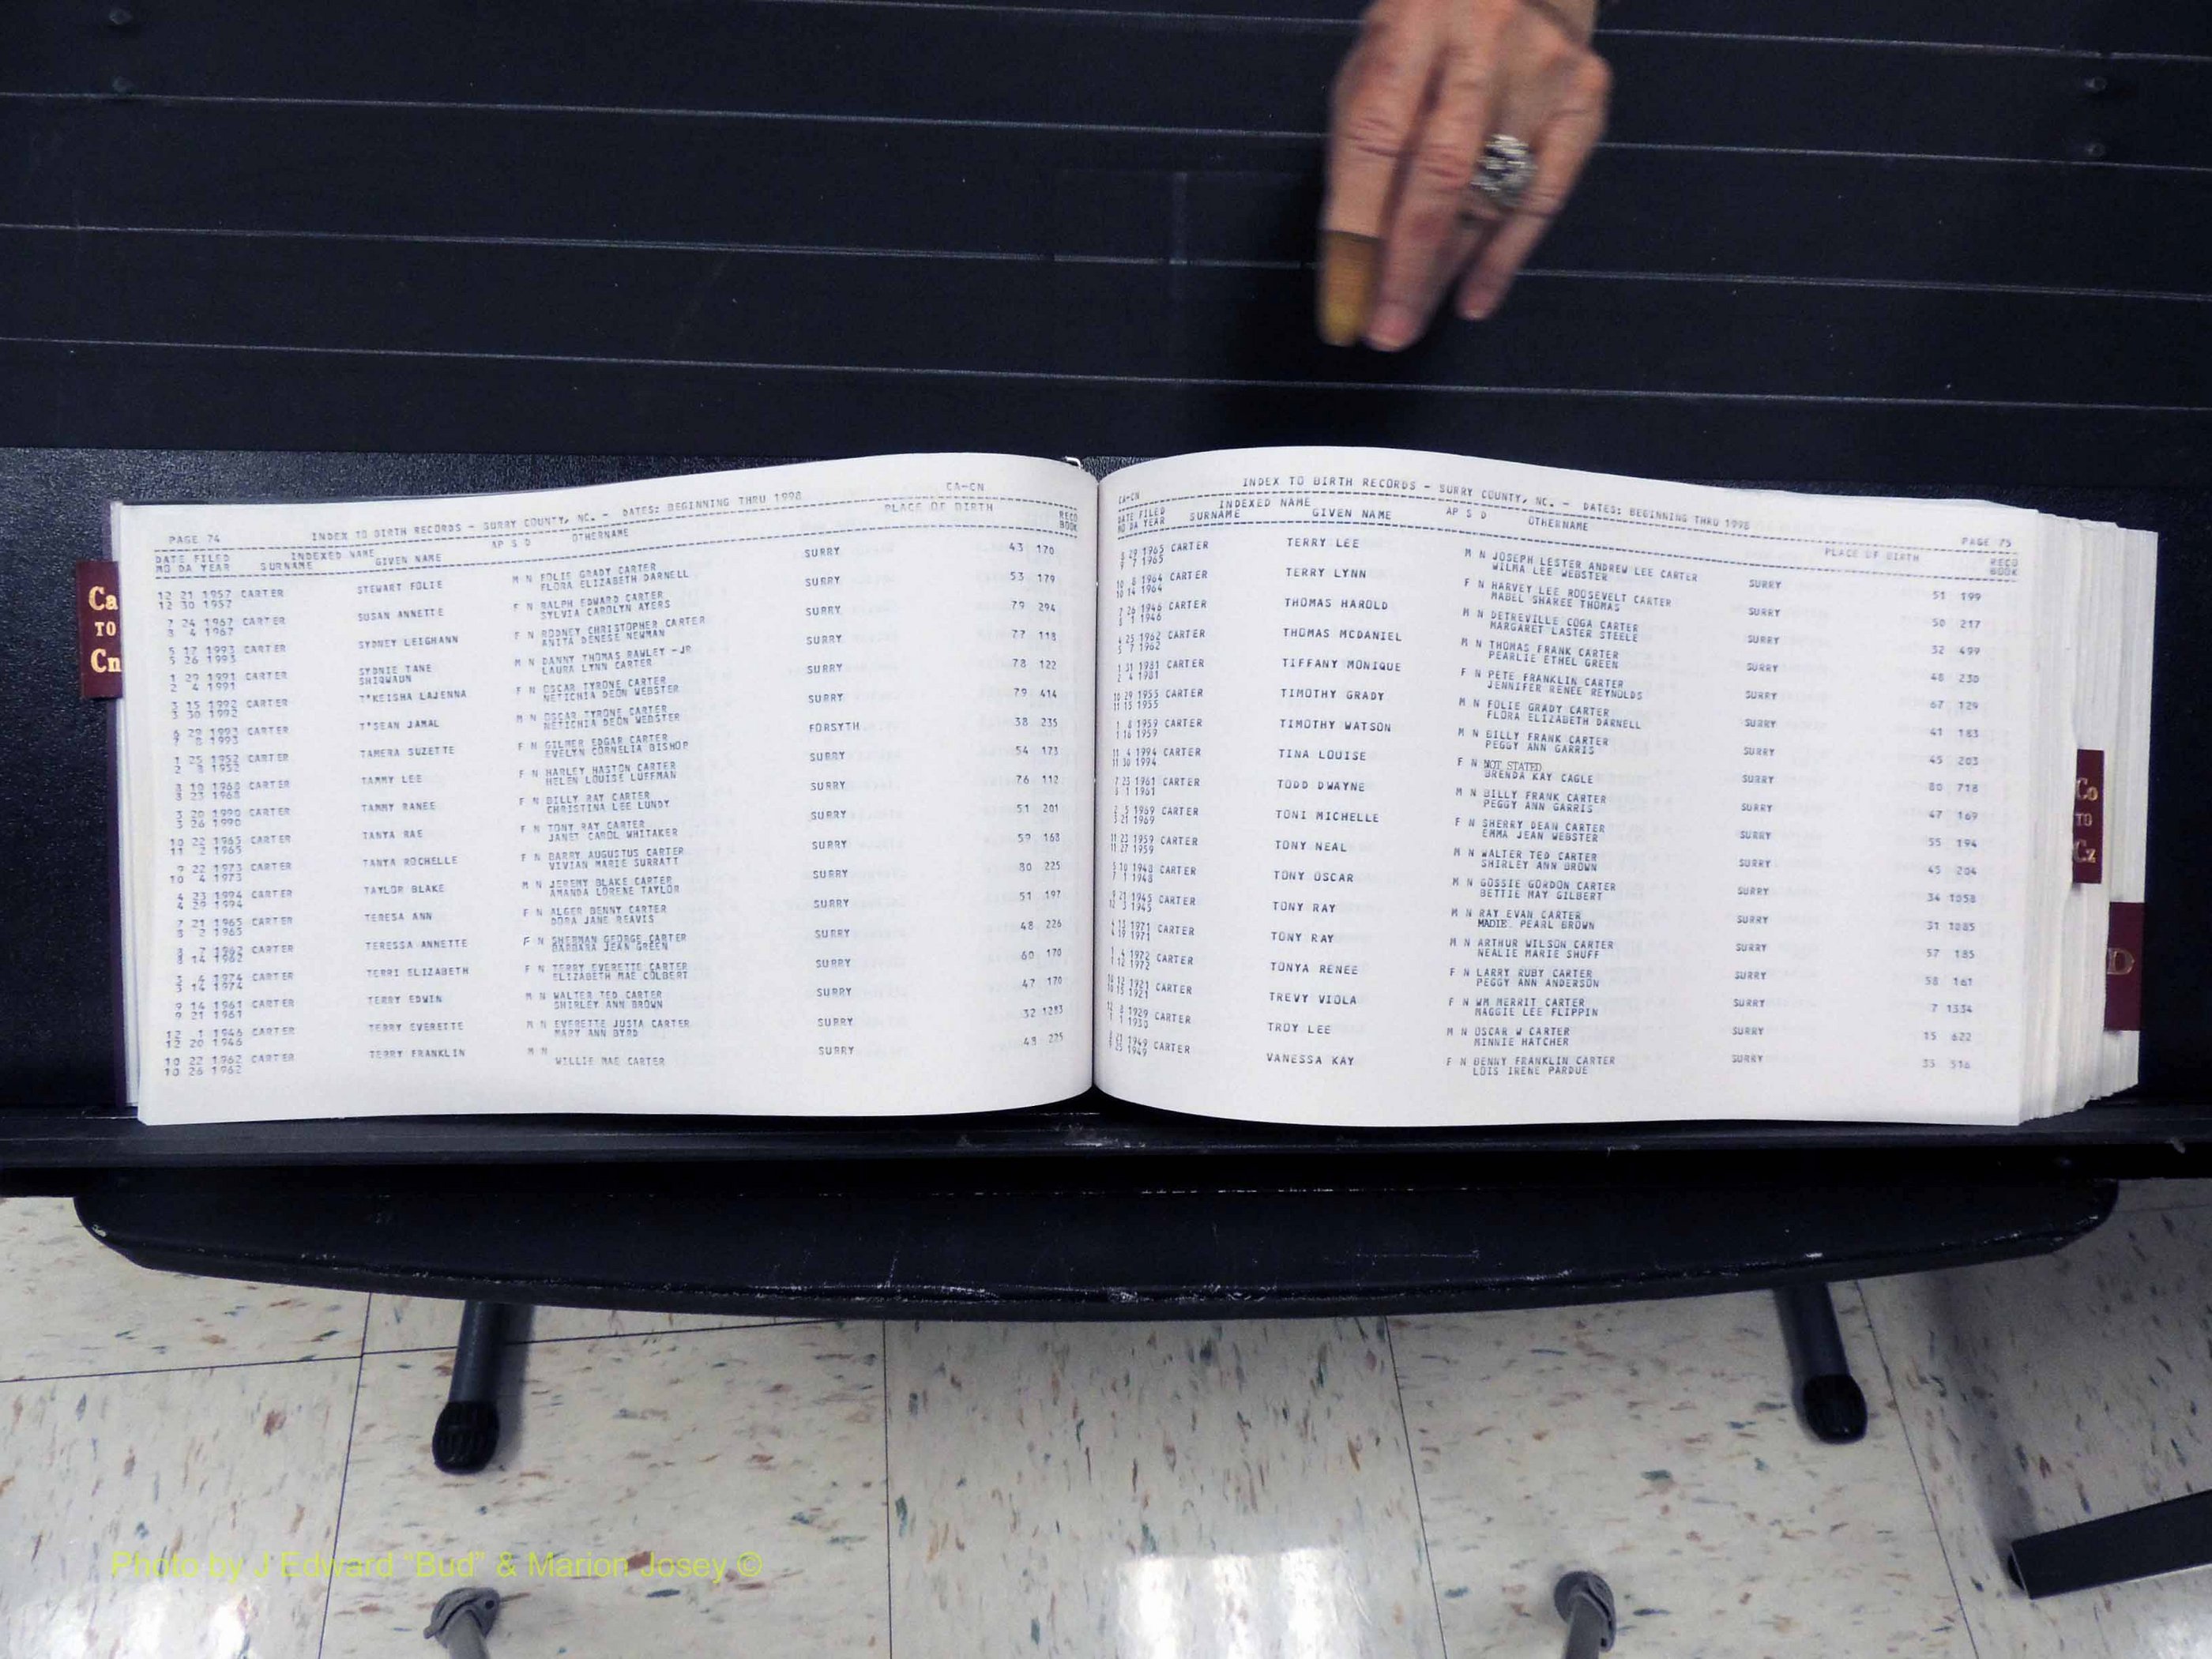 Ca
TO
Cn
PAGE 74 INDEX TO BIRTH RECORDS - SURRY COUNTY, NC. - DATES: BEGINNING THRU 1998 CA-CN
DATE FILED INDEXED NAME AP S D OTHERNAME PLACE OF BIRTH RECD
MO DA YEAR SURNAME GIVEN NAME BOOK
12 21 1957 CARTER STEWART FOLIE M N FOLIE GRADY CARTER SURRY 43 170
12 30 1957 FLORA ELIZABETH DARNELL
7 24 1967 CARTER SUSAN ANNETTE F N RALPH EDWARD CARTER SURRY 53 179
8 4 1967 SYLVIA CAROLYN AYERS
5 17 1993 CARTER SYDNEY LEIGHANN F N RODNEY CHRISTOPHER CARTER SURRY 79 294
5 26 1993 ANITA DENESE NEWMAN
1 29 1991 CARTER SYDNIE TANE M N DANNY THOMAS RAWLEY -JR SURRY 77 118
2 4 1991 SHIQWAUN LAURA LYNN CARTER
3 15 1992 CARTER T'KEISHA LAJENNA F N OSCAR TYRONE CARTER SURRY 78 122
3 30 1992 NETICHIA DEON WEBSTER
6 29 1993 CARTER T'SEAN JAMAL M N OSCAR TYRONE CARTER SURRY 79 414
7 8 1993 NETICHIA DEON WEBSTER
1 25 1952 CARTER TAMERA SUZETTE F N GILMER EDGAR CARTER FORSYTH 38 235
2 8 1952 EVELYN CORNELIA BISHOP
8 10 1968 CARTER TAMMY LEE F N HARLEY HASTON CARTER SURRY 54 173
8 23 1968 HELEN LOUISE LUFFMAN
3 20 1990 CARTER TAMMY RANEE F N BILLY RAY CARTER SURRY 76 112
3 26 1990 CHRISTINA LEE LUNDY
10 22 1965 CARTER TANYA RAE F N TONY RAY CARTER SURRY 51 201
11 2 1965 JANET CAROL WHITAKER
9 22 1973 CARTER TANYA ROCHELLE F N BARRY AUGUSTUS CARTER SURRY 59 168
10 4 1973 VIVIAN MARIE SURRATT
4 23 1994 CARTER TAYLOR BLAKE M N JEREMY BLAKE CARTER SURRY 80 225
4 29 1994 AMANDA LORENE TAYLOR
7 21 1965 CARTER TERESA ANN F N ALGER DENNY CARTER SURRY 51 197
8 2 1965 DORA JANE REAVIS
8 7 1962 CARTER TERESSA ANNETTE F N SHERMAN GEORGE CARTER SURRY 48 226
8 14 1962 BARBARA JEAN GREEN
3 4 1974 CARTER TERRI ELIZABETH F N TERRY EVERETTE CARTER SURRY 60 170
3 14 1974 ELIZABETH MAE COLBERT
9 14 1961 CARTER TERRY EDWIN M N WALTER TED CARTER SURRY 47 170
9 21 1961 SHIRLEY ANN BROWN
12 1 1946 CARTER TERRY EVERETTE M N EVERETTE JUSTA CARTER SURRY 32 1283
12 20 1946 MARY ANN BYRD
10 22 1962 CARTER TERRY FRANKLIN M N SURRY 48 225
10 26 1962 WILLIE MAE CARTER
CA-CN INDEX TO BIRTH RECORDS - SURRY COUNTY, NC. - DATES: BEGINNING THRU 1998 PAGE 75
DATE FILED INDEXED NAME AP S D OTHERNAME PLACE OF BIRTH RECD
MO DA YEAR SURNAME GIVEN NAME BOOK
8 29 1965 CARTER TERRY LEE M N JOSEPH LESTER ANDREW LEE CARTER SURRY 51 199
9 7 1965 WILMA LEE WEBSTER
10 8 1964 CARTER TERRY LYNN F N HARVEY LEE ROOSEVELT CARTER SURRY 50 217
10 14 1964 MABEL SHAREE THOMAS
7 26 1946 CARTER THOMAS HAROLD M N DETREVILLE COGA CARTER SURRY 32 499
8 1 1946 MARGARET LASTER STEELE
4 25 1962 CARTER THOMAS MCDANIEL M N THOMAS FRANK CARTER SURRY 48 230
5 7 1962 PEARLIE ETHEL GREEN
1 31 1981 CARTER TIFFANY MONIQUE F N PETE FRANKLIN CARTER SURRY 67 129
2 4 1981 JENNIFER RENEE REYNOLDS
10 29 1955 CARTER TIMOTHY GRADY M N FOLIE GRADY CARTER SURRY 41 183
11 15 1955 FLORA ELIZABETH DARNELL
1 8 1959 CARTER TIMOTHY WATSON M N BILLY FRANK CARTER SURRY 45 203
1 16 1959 PEGGY ANN GARRIS
11 4 1994 CARTER TINA LOUISE F N NOT STATED SURRY 80 718
11 30 1994 BRENDA KAY CAGLE
7 23 1961 CARTER TODD DWAYNE M N BILLY FRANK CARTER SURRY 47 169
8 1 1961 PEGGY ANN GARRIS
2 5 1969 CARTER TONI MICHELLE F N SHERRY DEAN CARTER SURRY 55 194
3 21 1969 EMMA JEAN WEBSTER
11 23 1959 CARTER TONY NEAL M N WALTER TED CARTER SURRY 45 204
11 27 1959 SHIRLEY ANN BROWN
5 30 1948 CARTER TONY OSCAR M N GOSSIE GORDON CARTER SURRY 34 1058
7 1 1948 BETTIE MAY GILBERT
9 21 1945 CARTER TONY RAY M N RAY EVAN CARTER SURRY 31 1085
12 3 1945 MADIE PEARL BROWN
4 13 1971 CARTER TONY RAY M N ARTHUR WILSON CARTER SURRY 57 185
4 19 1971 NEALIE MARIE SHUFF
1 4 1972 CARTER TONYA RENEE F N LARRY RUBY CARTER SURRY 58 161
1 12 1972 PEGGY ANN ANDERSON
10 12 1921 CARTER TREVY VIOLA F N WM MERRIT CARTER SURRY 7 1334
10 15 1921 MAGGIE LEE FLIPPIN
12 8 1929 CARTER TROY LEE M N OSCAR W CARTER SURRY 15 622
1 1 1930 MINNIE HATCHER
8 21 1949 CARTER VANESSA KAY F N BENNY FRANKLIN CARTER SURRY 35 516
9 25 1949 LOIS IRENE PARDUE
Co
TO
Cz
D
Photo by J Edward "Bud" & Marion Josey ©